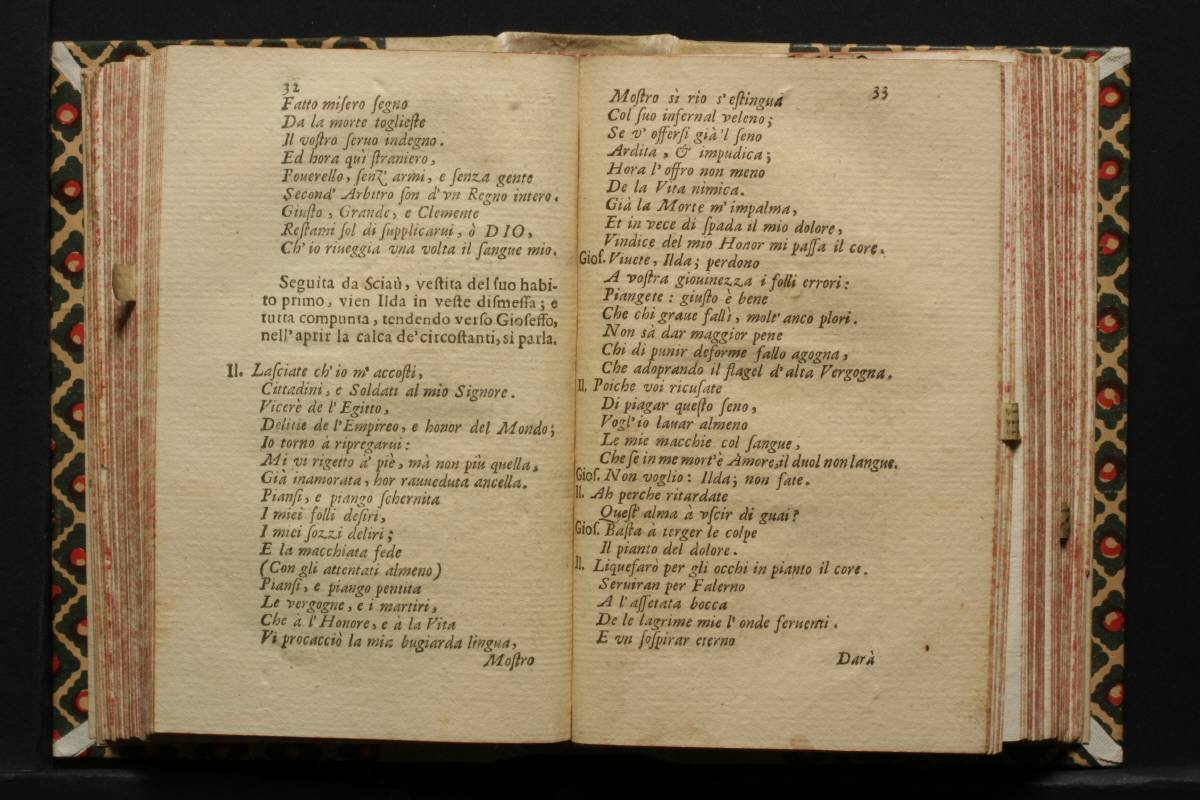 32
Fatto misero segno
Da la morte toglieste
Il vostro seruo indegno.
Ed hora quì straniero,
Pouerello, senz' armi, e senza gente
Second' Arbitro son d'vn Regno intero.
Giusto, Grande, e Clemente
Restami sol di supplicarui, ò DIO,
Ch' io riueggia vna volta il sangue mio.
Seguita da Sciaù, vestita del suo habi-
to primo, vien Ilda in veste dismessa; e
tutta compunta, tendendo verso Gioseffo,
nell' aprir la calca de' circostanti, si parla.
Il. Lasciate ch' io m' accosti,
Cittadini, e Soldati al mio Signore.
Vicerè de l' Egitto,
Delitie de l' Empireo, e honor del Mondo;
Io torno à ripregarui:
Mi vi rigetto a' piè, mà non più quella,
Già inamorata, hor rauueduta ancella.
Piansi, e piango schernita
I miei folli desiri,
I miei sozzi deliri;
E la macchiata fede
(Con gli attentati almeno)
Piansi, e piango pentita
Le vergogne, e i martiri,
Che à l' Honore, e à la Vita
Vi procacciò la mia bugiarda lingua,
Mostro
33
Mostro sì rio s' estingua
Col suo infernal veleno;
Se v' offersi già 'l seno
Ardita, & impudica;
Hora l' offro non meno
De la Vita nimica.
Già la Morte m' impalma,
Et in vece di spada il mio dolore,
Vindice del mio Honor mi passa il core.
Gios. Viuete, Ilda; perdono
A vostra giouinezza i folli errori:
Piangete: giusto è bene
Che chi graue fallì, molt' anco plori.
Non sà dar maggior pene
Chi di punir deforme fallo agogna,
Che adoprando il flagel d' alta Vergogna.
Il. Poiche voi ricusate
Di piagar questo seno,
Vogl' io lauar almeno
Le mie macchie col sangue,
Che se in me mort' è Amore, il duol non langue.
Gios. Non voglio: Ilda; non fate.
Il. Ah perche ritardate
Quest' alma à vscir di guai?
Gios. Basta à terger le colpe
Il pianto del dolore.
Il. Liquefarò per gli occhi in pianto il core.
Seruiran per Falerno
A l' assetata bocca
De le lagrime mie l' onde feruenti.
E vn sospirar eterno
Darà